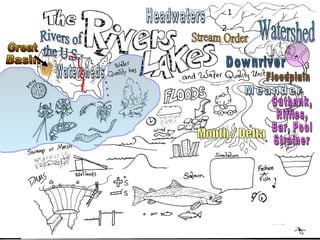 The
Rivers
Lakes
and Water Quality Unit
Headwaters
Stream Order
Watershed
1
2
Rivers of
the U.S.
Great
Basin
Watersheds
Water
Quality
Downriver
Floodplain
Meander
Cutbank,
Riffles,
Bar, Pool
Strainer
FLOODS
Mouth / Delta
Swamp or Marsh
Wetlands
DAMS
+'s
-'s
Salmon
Simulation
Fashion
a
Fish